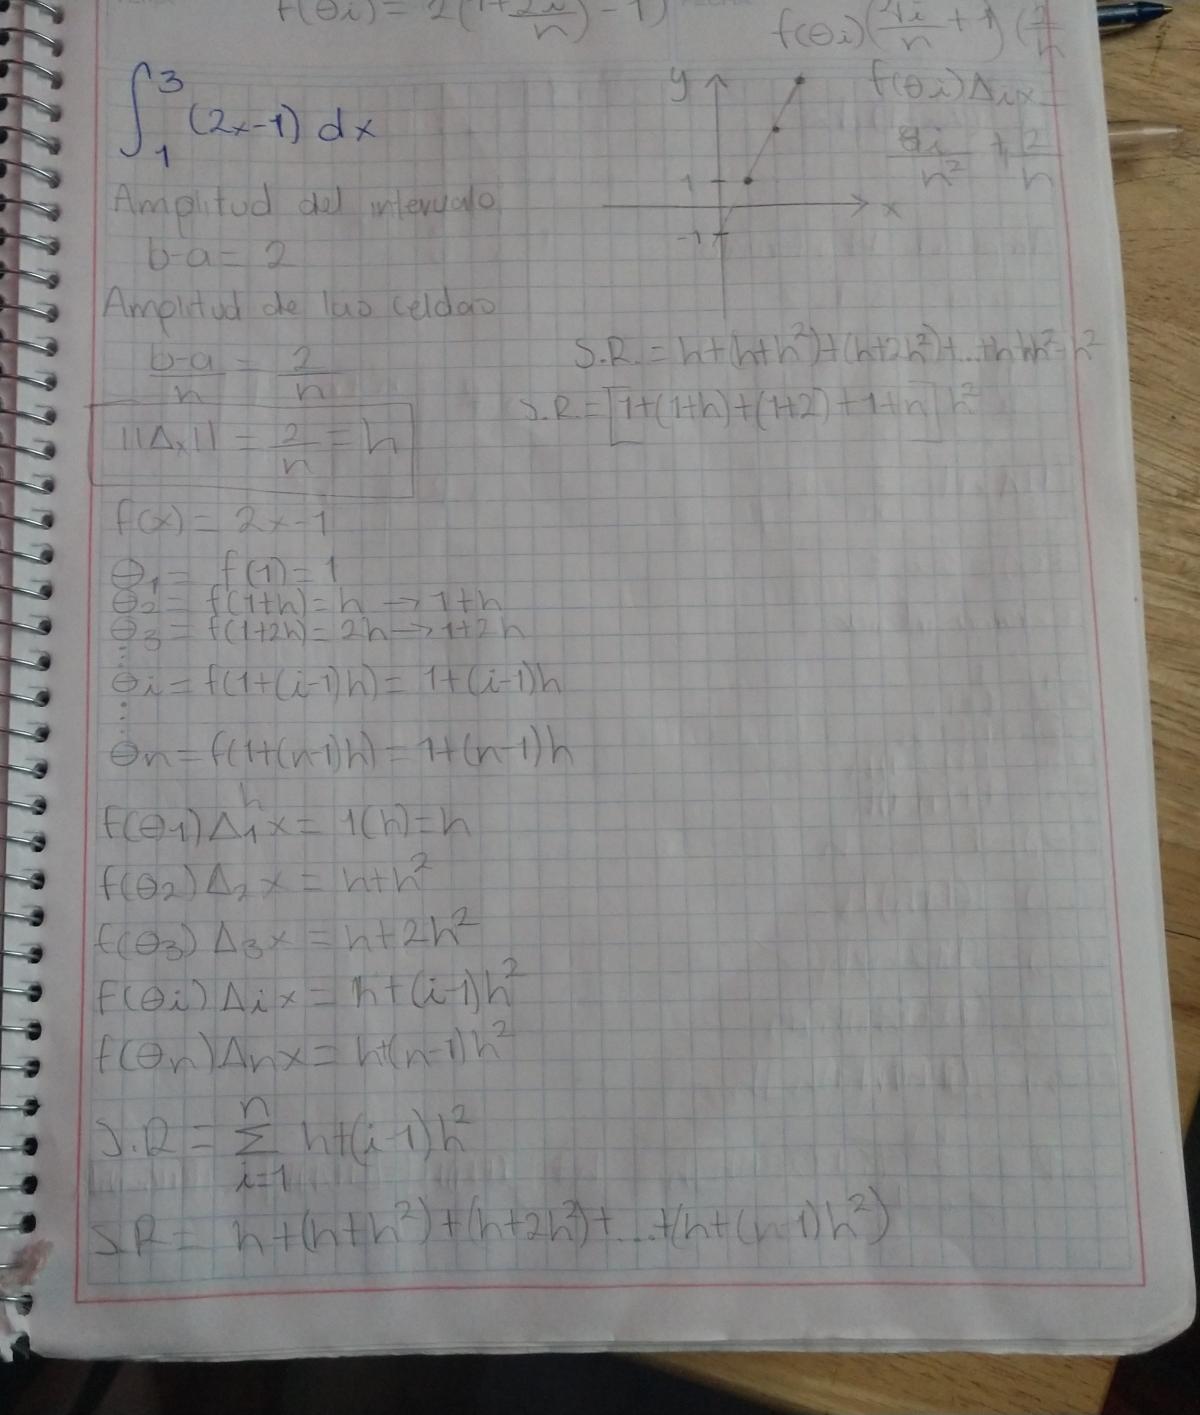 f(θi) = 2(1+2i/n) - 1)
f(θi)(4i/n + 1)(2/n
∫₁³ (2x-1) dx
y
f(θi)Δix
8i/n² + 2/n
1
x
-1
Amplitud del intervalo
b-a = 2
Amplitud de las celdas
b-a/n = 2/n
S.R. = h+(h+h²)+(h+2h²)+...+h+nh²-h²
S.R = [1+(1+h)+(1+2)+1+n] h²
||Δx|| = 2/n = h
f(x) = 2x-1
θ₁ = f(1) = 1
θ₂ = f(1+h) = h → 1+h
θ₃ = f(1+2h) = 2h → 1+2h
⋮
θi = f(1+(i-1)h) = 1+(i-1)h
⋮
θn = f(1+(n-1)h) = 1+(n-1)h
h
f(θ₁)Δ₁x = 1(h) = h
f(θ₂)Δ₂x = h+h²
f(θ₃)Δ₃x = h+2h²
f(θi)Δix = h+(i-1)h²
f(θn)Δnx = h+(n-1)h²
S.R = Σ i=1 n h+(i-1)h²
S.R = h+(h+h²)+(h+2h²)+...+(h+(n-1)h²)